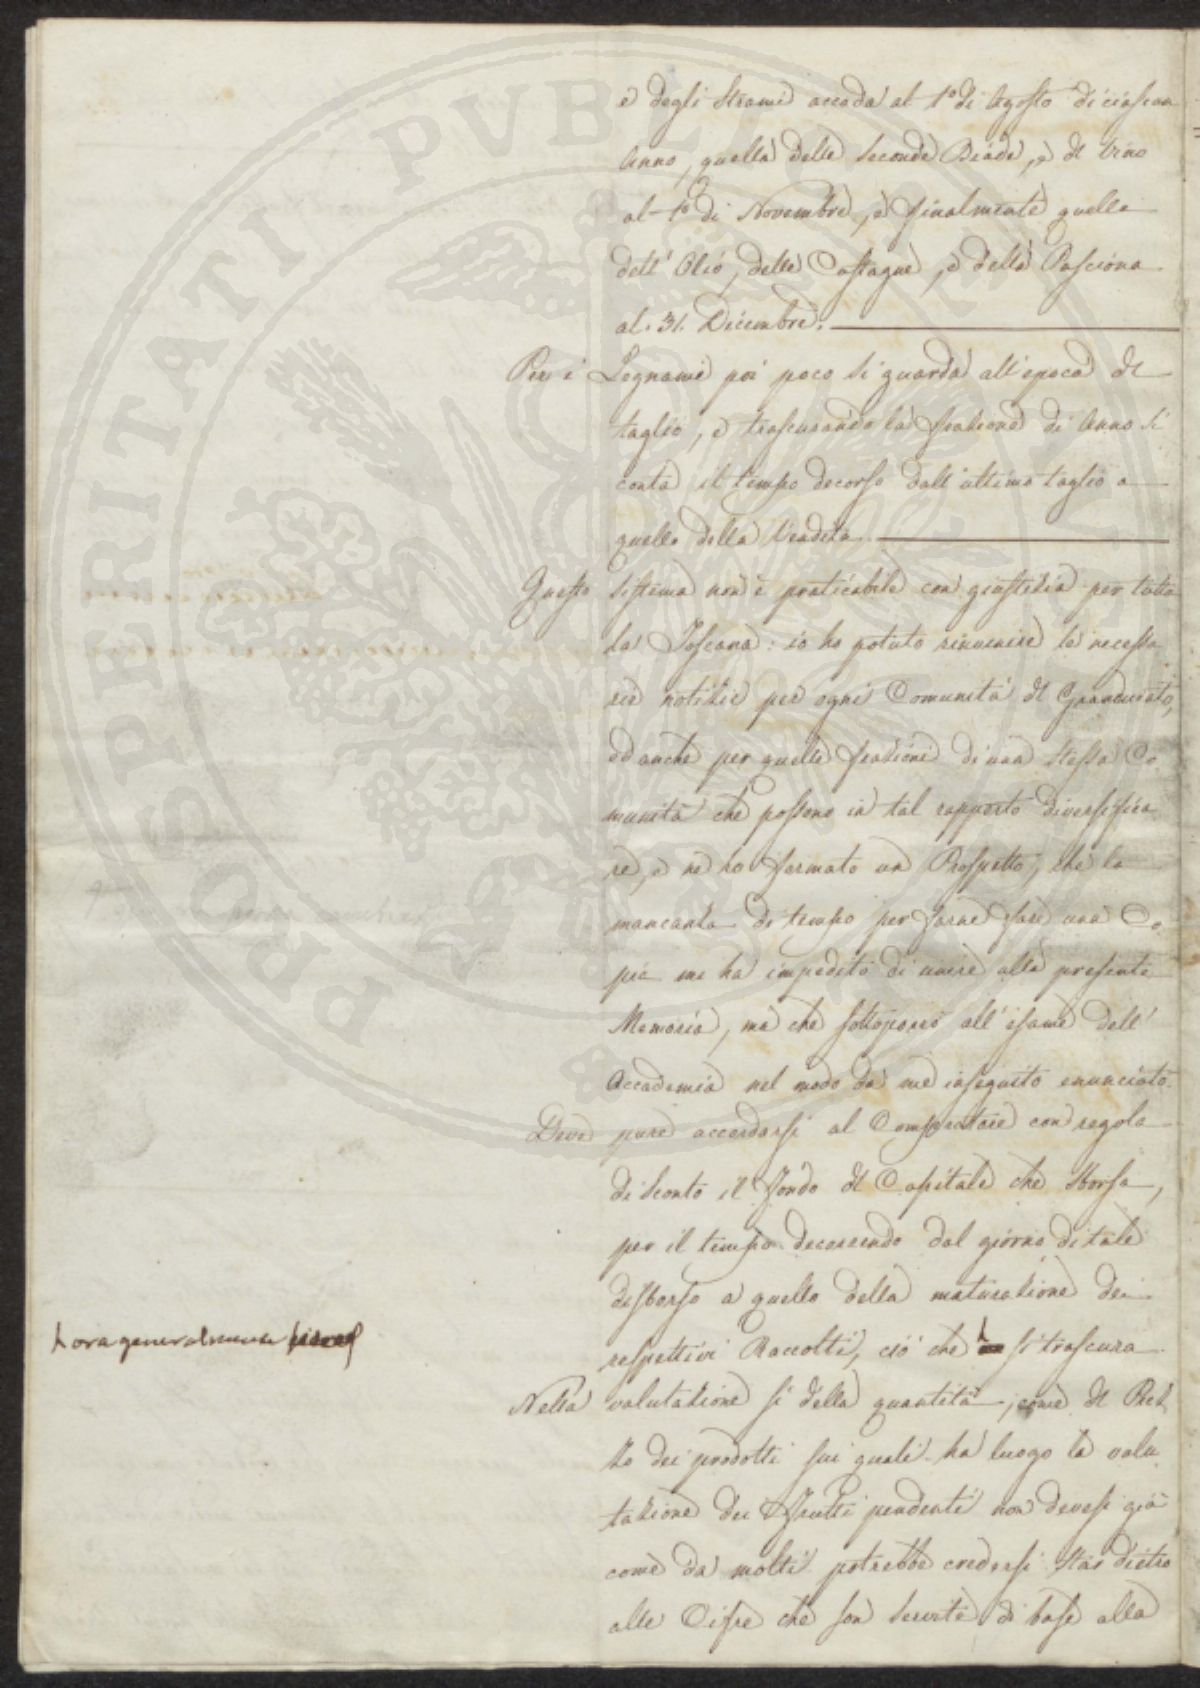 e degli Strami accada al 1.o di Agosto di ciascun
Anno, quella delle Seconde Biade, e del Vino
al 1.o di Novembre, e finalmente quella
dell'Olio, delle Castagne, e della Pasciona
al 31. Decembre.
Per i Legnami poi poco si guarda all'epoca del
taglio, e trascurando la frazione di Anno si
conta il tempo decorso dall'ultimo taglio a
quello della Vendita.
Questo sistema non è praticabile con giustizia per tutta
la Toscana: io ho potuto rinvenire le necessa
rie notizie per ogni Comunità del Granducato,
ed anche per quelle frazioni di una stessa Co
munità che possono in tal rapporto diversifica
re, e ne ho formato un Prospetto, che la
mancanza di tempo per farne fare una Co
pia me ha impedito di unire alla presente
Memoria, ma che sottoporrò all'esame dell'
Accademia nel modo da me in seguito enunciato.
Deve pure accordarsi al Compratore con regola
di Sconto il fondo del Capitale che sborsa,
per il tempo decorrendo dal giorno di tale
disborso a quello della maturazione dei
respettivi Raccolti, ciò che si trascura
ora generalmente
Nella valutazione sì della quantità, come del Prez
zo dei prodotti sui quali ha luogo la valu
tazione dei Frutti pendenti non devesi già
come da molti potrebbe credersi star dietro
alle Cifre che son servite di base alla
PROSPERITATI PVBLICAE